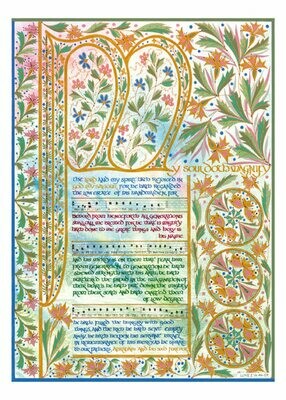 SOUL DOTH MAGNIFY
THE LORD AND MY SPIRIT HATH REJOICED IN
GOD MY SAVIOUR FOR HE HATH REGARDED
THE LOW ESTATE OF HIS HANDMAIDEN FOR
BEHOLD FROM HENCEFORTH ALL GENERATIONS
SHALL CALL ME BLESSED FOR HE THAT IS MIGHTY
HATH DONE TO ME GREAT THINGS AND HOLY IS
HIS NAME
AND HIS MERCY IS ON THEM THAT FEAR HIM
FROM GENERATION TO GENERATION HE HATH
HE HATH PUT DOWN THE MIGHTY
FROM THEIR SEATS AND EXALTED THEM
OF LOW DEGREE
HE HATH FILLED THE HUNGRY WITH GOOD
THINGS AND THE RICH HE HATH SENT EMPTY
AWAY HE HATH HOLPEN HIS SERVANT ISRAEL
IN REMEMBRANCE OF HIS MERCY AS HE SPAKE
TO OUR FATHERS ABRAHAM AND HIS SEED FOR EVER